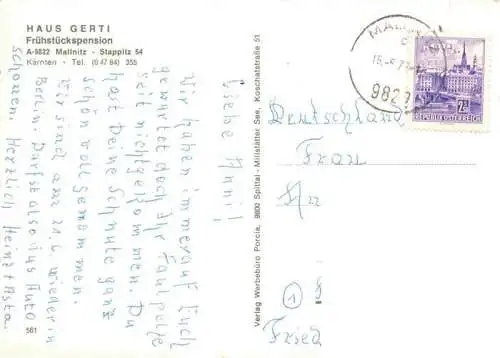 HAUS GERTI
Frühstückspension
A-9832 Mallnitz - Stappitz 54
Kärnten - Tel. (0 47 84) 355
Liebe Anni!
Wir haben immer auf Euch
gewartet doch Ihr Faulpelze
seit nicht gekommen. Du
hast Deine Schnute ganz
schön voll genommen.
Wir sind am 21.6. wieder in
Berlin. Darfst also ins Auto
schauen. Herzlich Heinz + Asta.
561
Verlag Werbebüro Porcia, 9800 Spittal - Millstätter See, Koschatstraße 51
MALLNITZ
9822
2S
REPUBLIK ÖSTERREICH
Deutschland
Frau
1
Fried